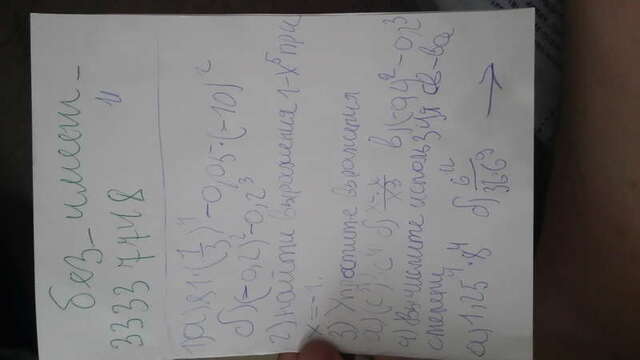 без_имени_
33337748
1)а) 81·(1/3)⁴ - 0,05·(-10)²
б)(-0,2)² - 0,2³
2) найти выражения 1-x⁵ при
x=-1.
3) Упростите выражения
а) б) в)
4) Вычислите используя св-ва
степени
а) 1,25⁴·8⁴ б) 6¹²/36·6⁹ →